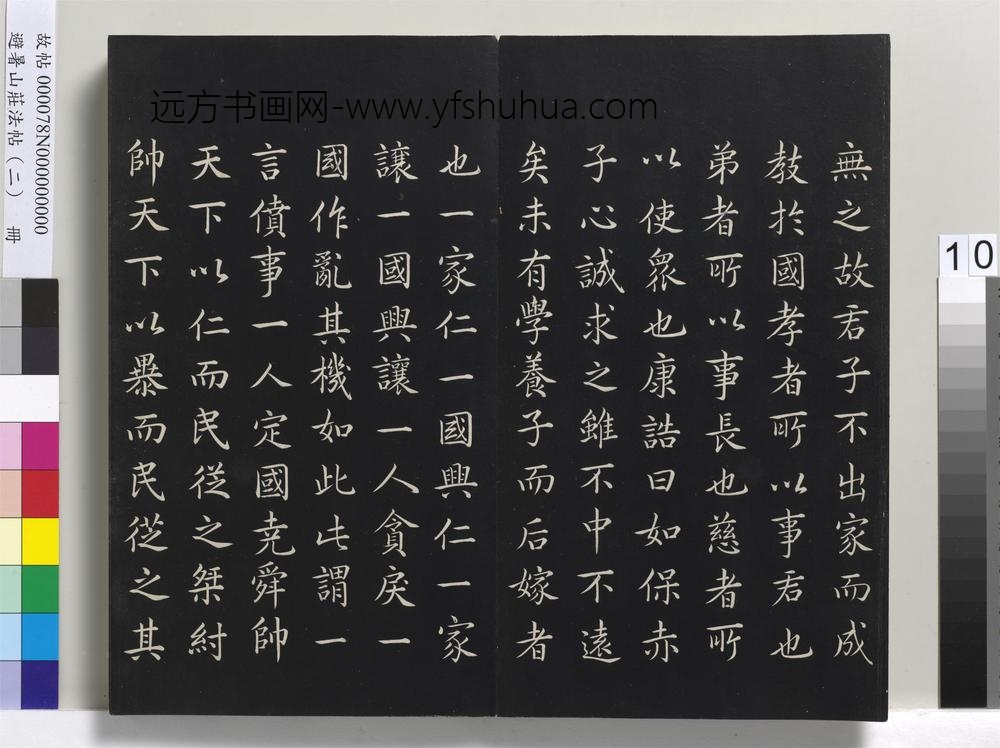 無之故君子不出家而成
教於國孝者所以事君也
弟者所以事長也慈者所
以使眾也康誥曰如保赤
子心誠求之雖不中不遠
矣未有學養子而后嫁者
也一家仁一國興仁一家
讓一國興讓一人貪戾一
國作亂其機如此此謂一
言僨事一人定國堯舜帥
天下以仁而民從之桀紂
帥天下以暴而民從之其
远方书画网-www.yfshuhua.com
故帖 000078N000000000
避暑山莊法帖（二） 冊
10